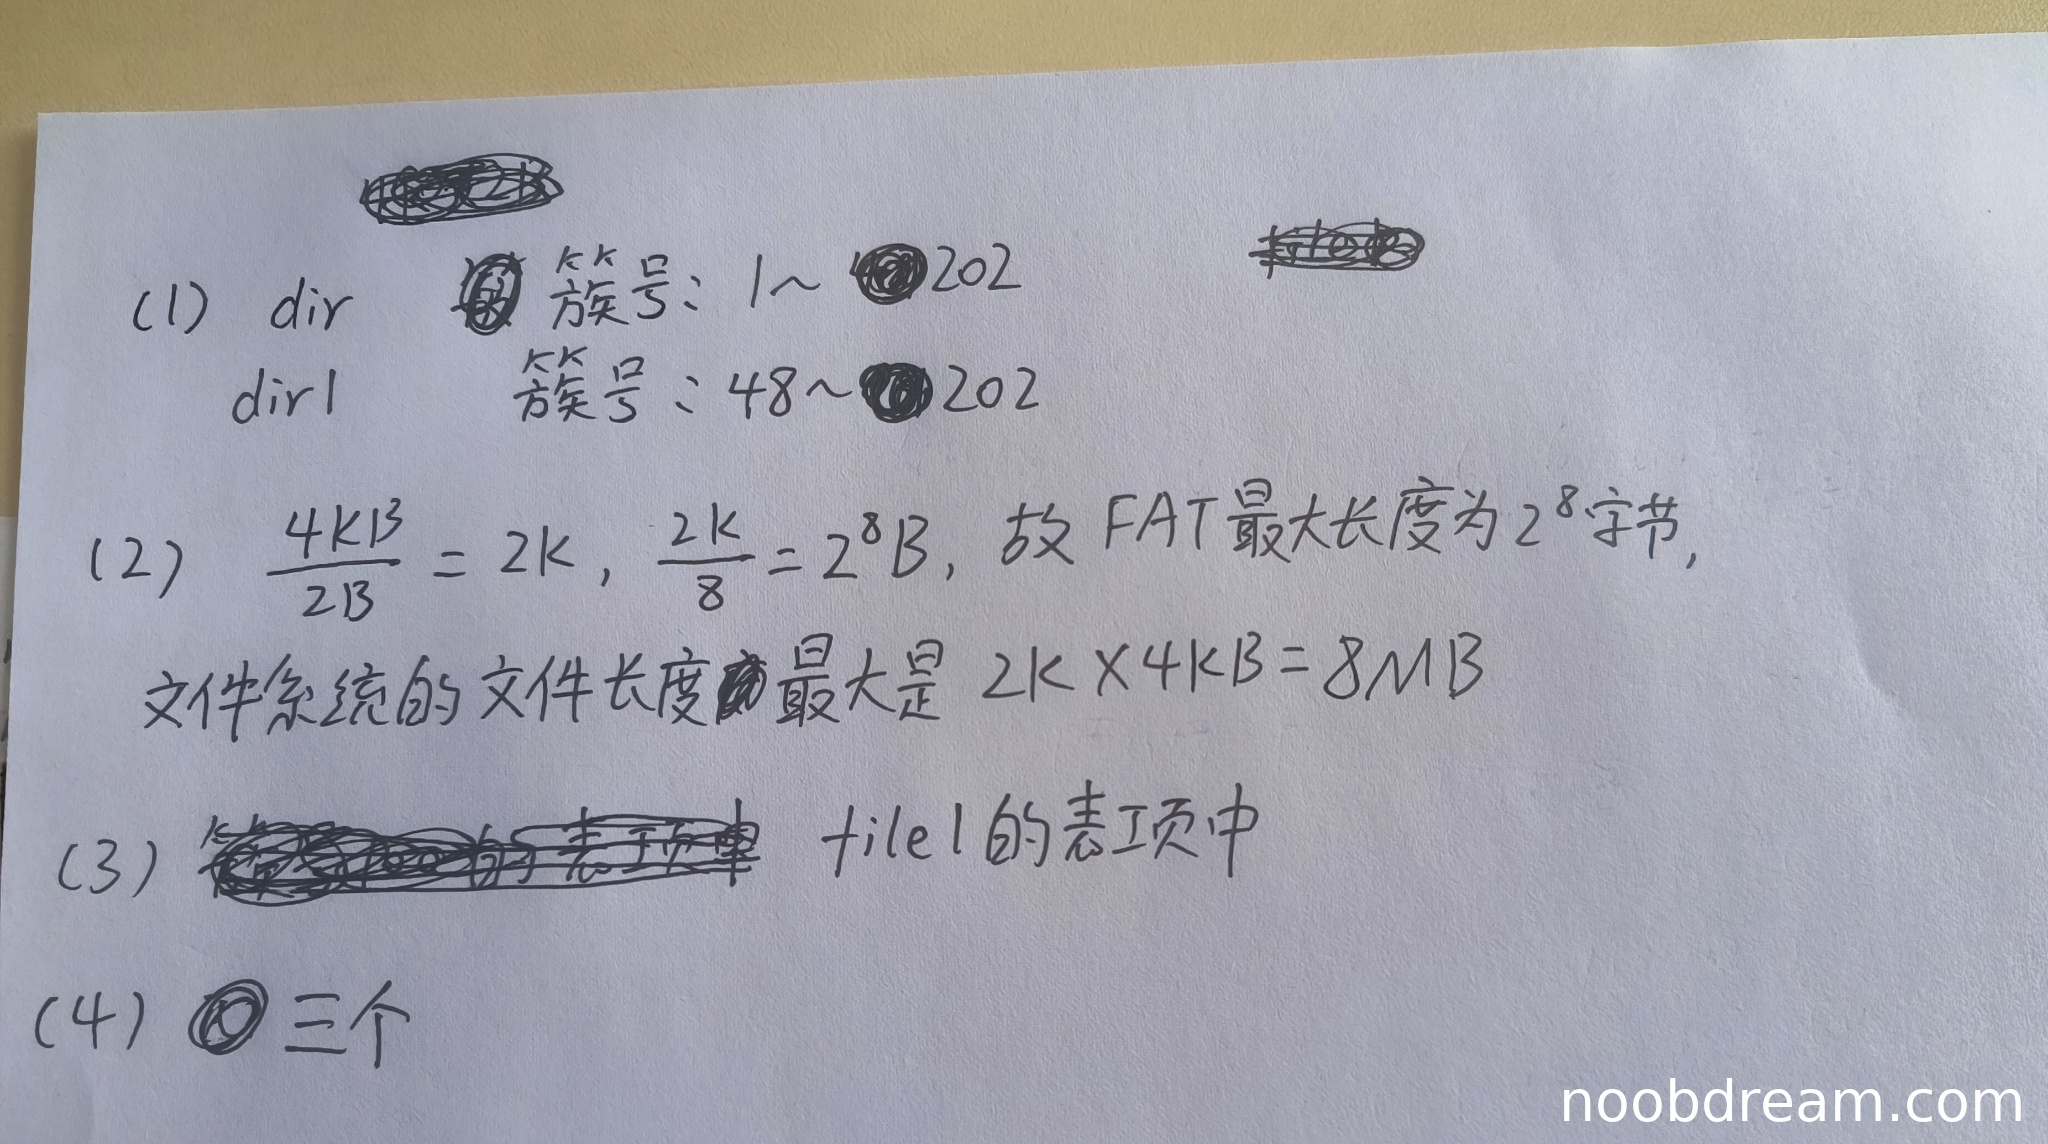 (1) dir 簇号: 1~202
dir1 簇号: 48~202
(2) 4KB/2B = 2K, 2K/8 = 2⁸B, 故 FAT最大长度为2⁸字节,
文件系统的文件长度最大是 2K×4KB=8MB
(3) file1的表项中
(4) 三个
noobdream.com